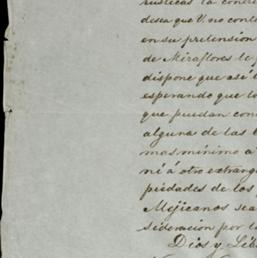 rusticas la conce
desea que V. no cont
en su pretension
de Miraflores le p
dispone que asi
esperando que lo
que puedan con
alguna de las
mas minimo a
ni á otro extrang
piedades de los
Mejicanos sea
sideracion por l
Dios y Lib